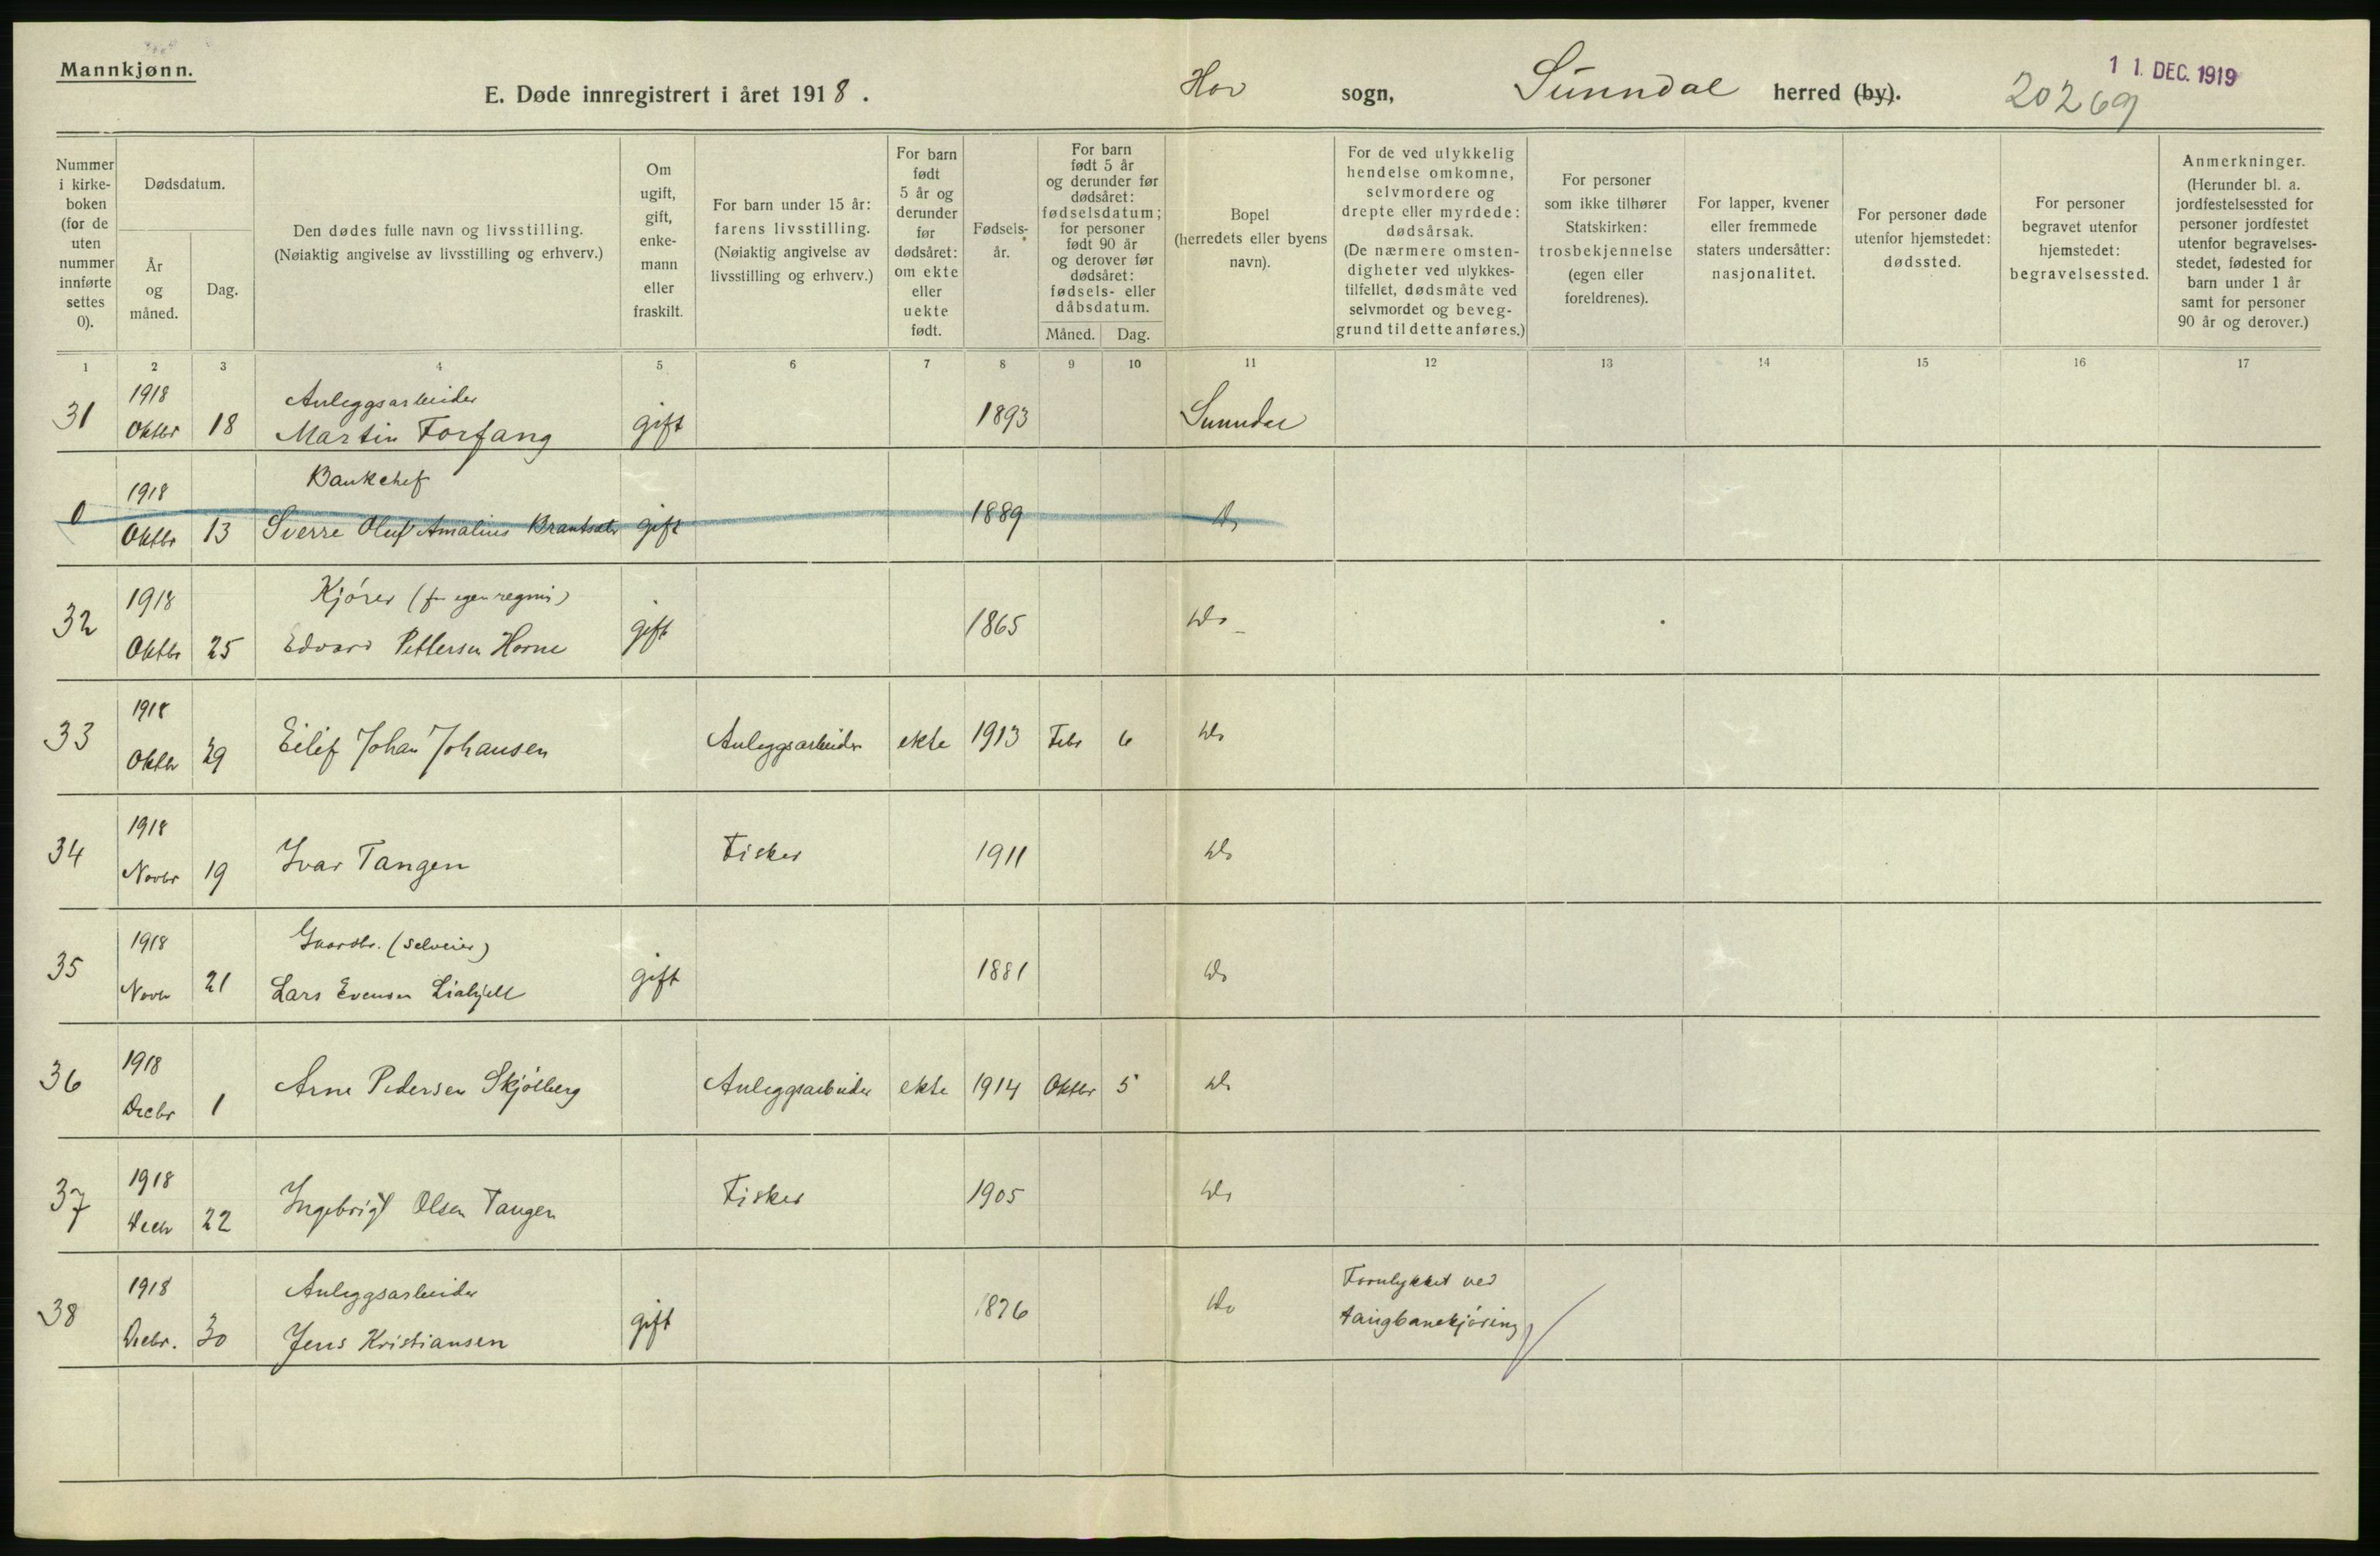 Mannkjønn.
E. Døde innregistrert i året 1918.
Hov sogn, Sunndal herred (by).
20269
11. DEC. 1919
Nummer i kirke-boken (for de uten nummer innførte settes 0).
Dødsdatum.
År og måned.
Dag.
Den dødes fulle navn og livsstilling.
(Nøiaktig angivelse av livsstilling og erhverv.)
Om ugift, gift, enke-mann eller fraskilt.
For barn under 15 år: farens livsstilling.
(Nøiaktig angivelse av livsstilling og erhverv.)
For barn født 5 år og derunder før dødsåret: om ekte eller uekte født.
Fødsels-år.
For barn født 5 år og derunder før dødsåret: fødselsdatum; for personer født 90 år og derover før dødsåret: fødsels- eller dåbsdatum.
Måned. Dag.
Bopel (herredets eller byens navn).
For de ved ulykkelig hendelse omkomne, selvmordere og drepte eller myrdede: dødsårsak.
(De nærmere omsten-digheter ved ulykkes-tilfellet, dødsmåte ved selvmordet og beveg-grund til dette anføres.)
For personer som ikke tilhører Statskirken: trosbekjennelse (egen eller foreldrenes).
For lapper, kvener eller fremmede staters undersåtter: nasjonalitet.
For personer døde utenfor hjemstedet: dødssted.
For personer begravet utenfor hjemstedet: begravelsessted.
Anmerkninger.
(Herunder bl. a. jordfestelsessted for personer jordfestet utenfor begravelses-stedet, fødested for barn under 1 år samt for personer 90 år og derover.)
1 2 3 4 5 6 7 8 9 10 11 12 13 14 15 16 17
31 1918 Oktbr 18 Anleggsarbeider
Martin Forfang gift 1893 Sunndal
0 1918 Oktbr 13 Bankchef
Sverre Oluf Amalius Brantsæter gift 1889 Do
32 1918 Oktbr 25 Kjører (for egen regning)
Edvard Pettersen Horne gift 1865 Do
33 1918 Oktbr 29 Eilif Johan Johansen Anleggsarbeider ekte 1913 Febr 6 Do
34 1918 Novbr 19 Ivar Tangen Fisker 1911 Do
35 1918 Novbr 21 Gaardbr. (selveier)
Lars Evensen Liahjell gift 1881 Do
36 1918 Decbr 1 Arne Pedersen Skjølberg Anleggsarbeider ekte 1914 Oktbr 5 Do
37 1918 Decbr 22 Ingebrigt Olsen Tangen Fisker 1905 Do
38 1918 Decbr. 30 Anleggsarbeider
Jens Kristiansen gift 1876 Do Forulykket ved
taugbanekjøring